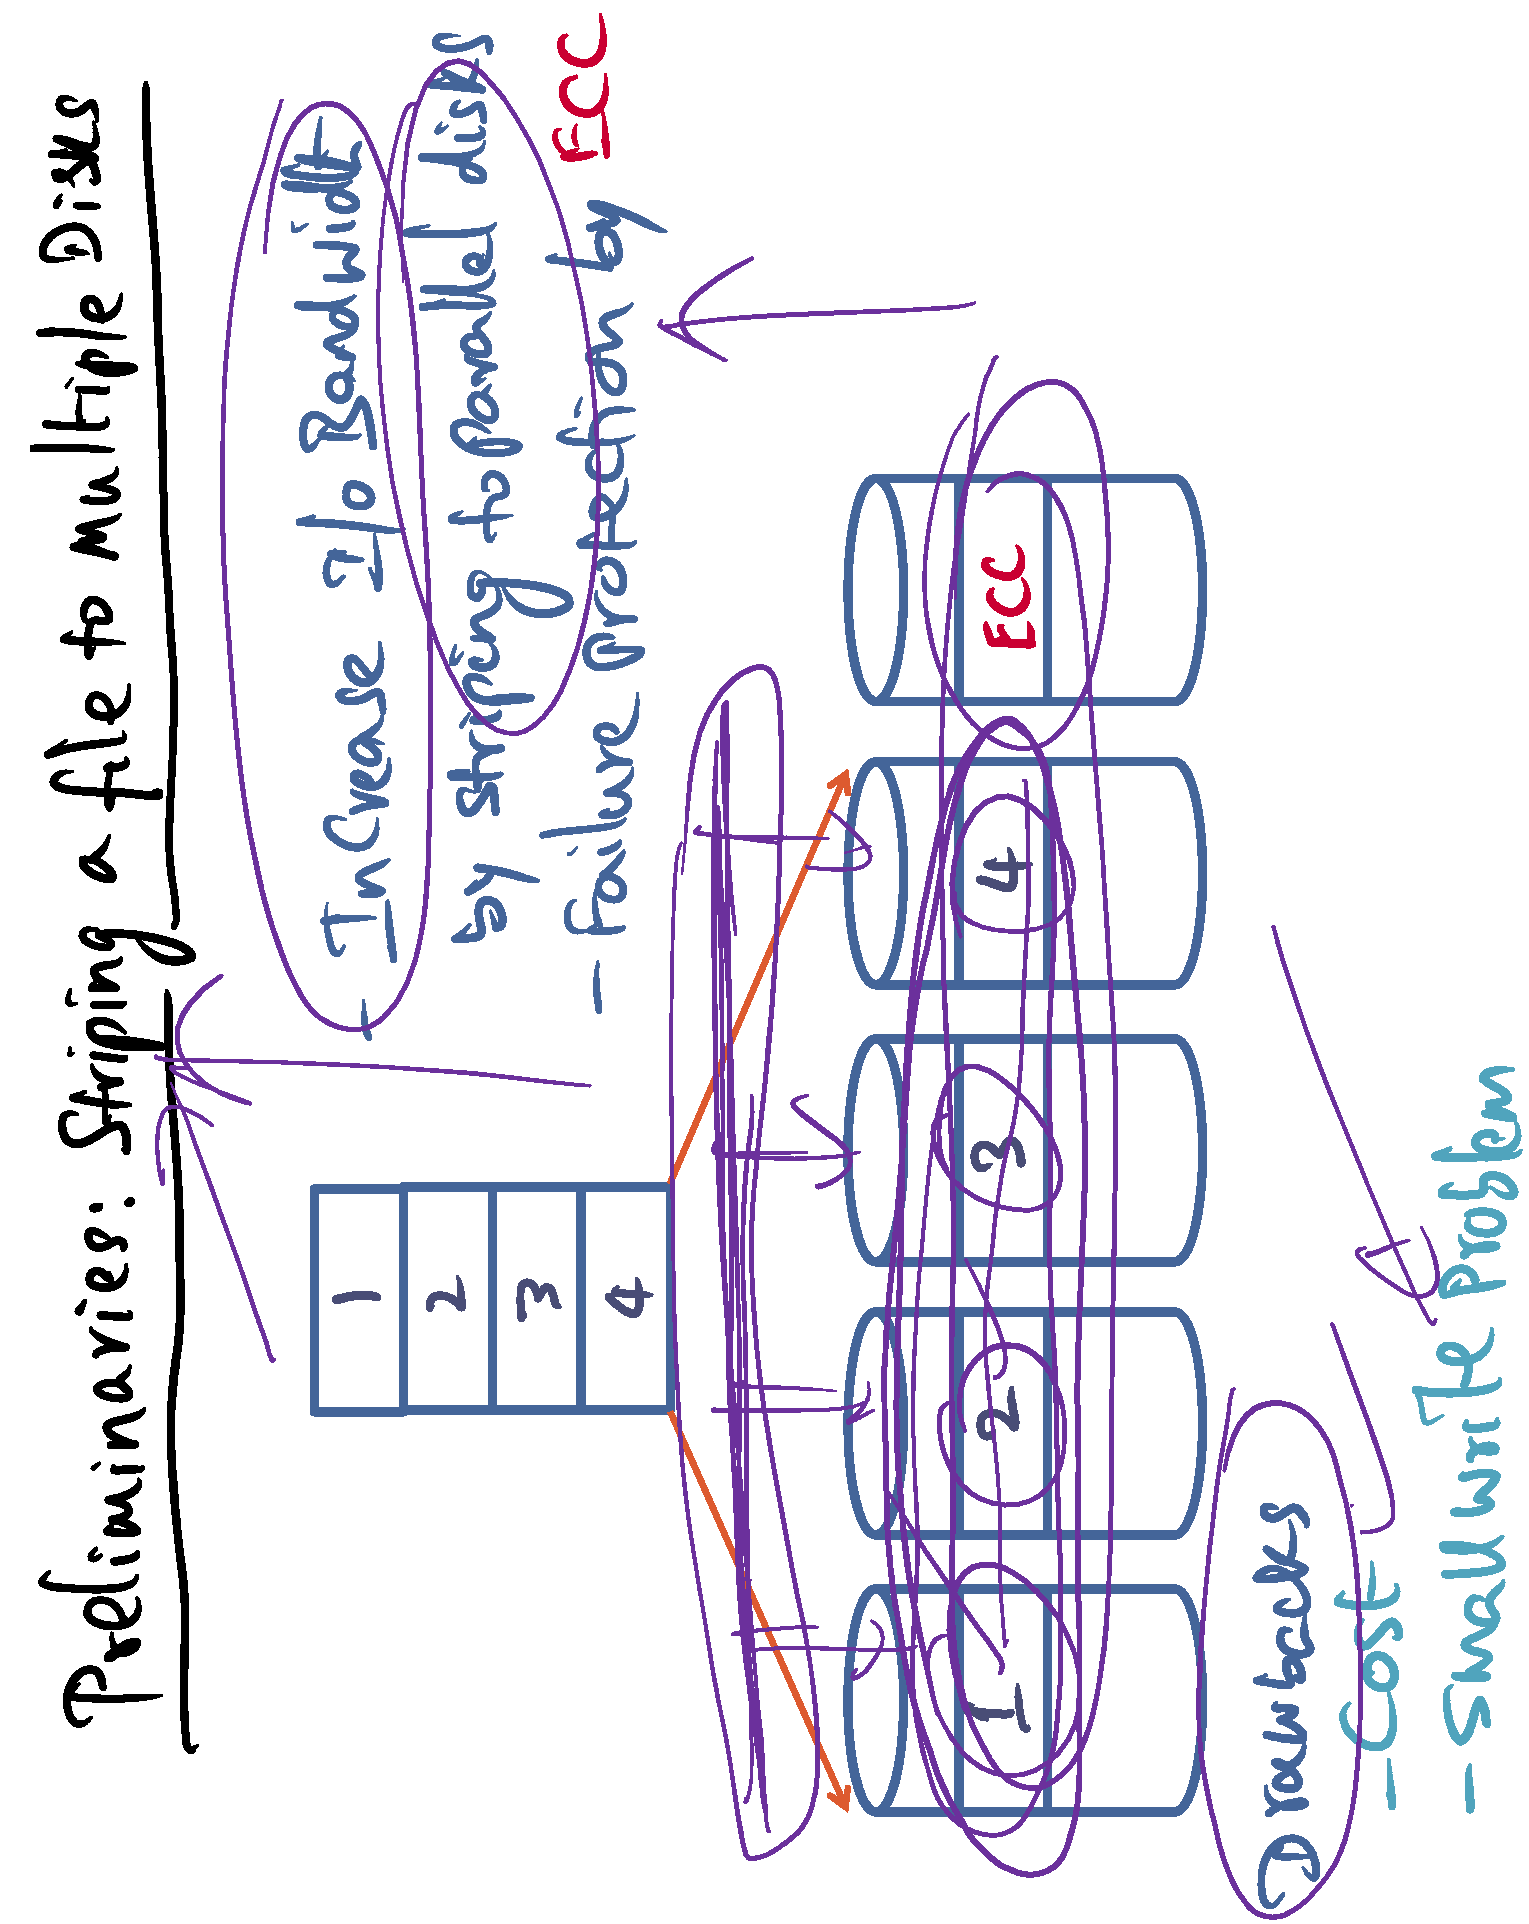 Preliminaries: Striping a file to multiple Disks
- InCrease I/O Bandwidth
by striping to parallel disks
- failure protection by ECC
1
2
3
4
1 2 3 4 ECC
Drawbacks
- Cost
- Small write problem